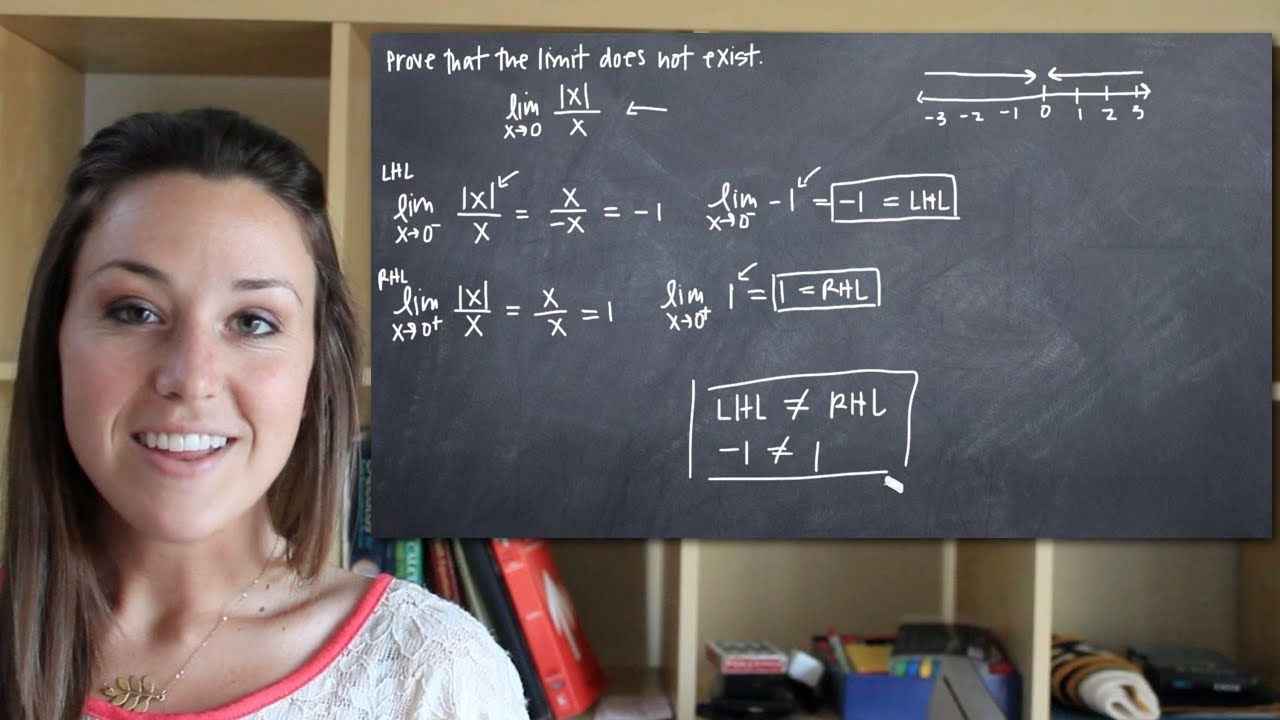 Prove that the limit does not exist.
lim x→0 |x|/x ←
-3 -2 -1 0 1 2 3
LHL
lim x→0⁻ |x|/x = x/-x = -1 lim x→0⁻ -1 = -1 = LHL
RHL
lim x→0⁺ |x|/x = x/x = 1 lim x→0⁺ 1 = 1 = RHL
LHL ≠ RHL
-1 ≠ 1